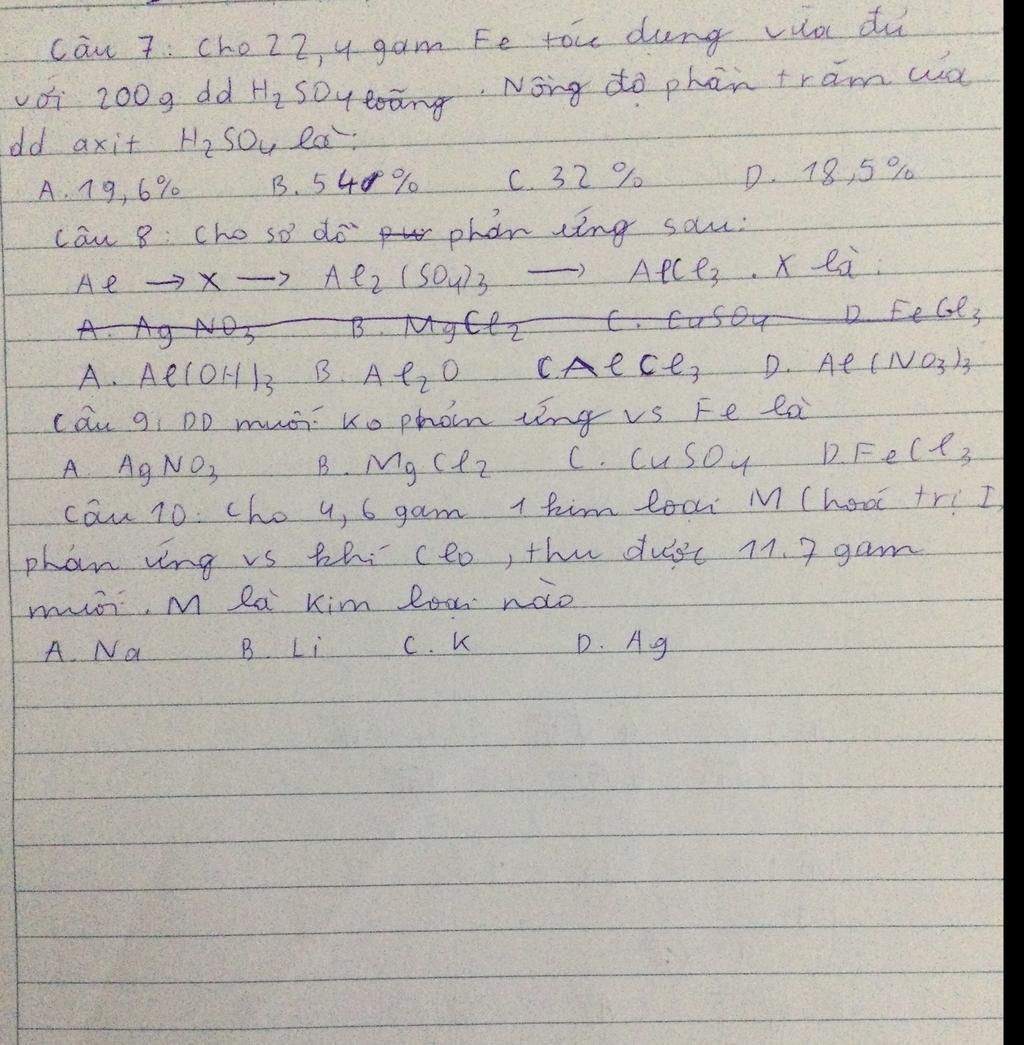 Câu 7: Cho 22,4 gam Fe tác dụng vừa đủ
với 200g dd H₂SO₄ loãng. Nồng độ phần trăm của
dd axit H₂SO₄ là:
A. 19,6% B. 54% C. 32% D. 18,5%
Câu 8: Cho sơ đồ pư phản ứng sau:
Al → X → Al₂(SO₄)₃ → AlCl₃. X là:
A. AgNO₃ B. MgCl₂ C. CuSO₄ D. FeCl₃
A. Al(OH)₃ B. Al₂O C AlCl₃ D. Al(NO₃)₃
Câu 9: DD muối ko phản ứng vs Fe là
A. AgNO₃ B. MgCl₂ C. CuSO₄ D. FeCl₃
Câu 10: Cho 4,6 gam 1 kim loại M (hoá trị I,
phản ứng vs khí Clo, thu được 11.7 gam
muối. M là kim loại nào
A. Na B. Li C. K D. Ag